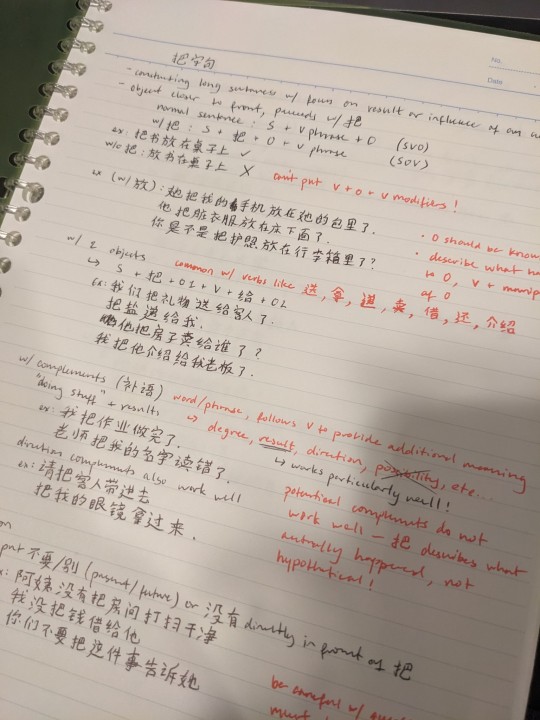 No.
Date
把字句
- constructing long sentences w/ focus on result or influence of an
- object closer to front, preceeds w/ 把
normal sentence: S + V phrase + O (SVO)
w/ 把: S + 把 + O + V phrase (SOV)
ex: 把书放在桌子上 ✓
w/o 把: 放书在桌子上 ✗ can't put V + O + V modifiers!
ex (w/ 放): 她把我的手机放在她的包里了.
他把脏衣服放在床下面了.
你是不是把护照放在行李箱里了?
· O should be know
· describe what ha
to O, V + manip
of O
w/ 2 objects common w/ verbs like 送, 拿, 递, 卖, 借, 还, 介绍
↳ S + 把 + O1 + V + 给 + O2
ex: 我们把礼物送给客人了.
把盐递给我.
他把房子卖给谁了?
我把他介绍给我老板了.
w/ complements (补语) word/phrase, follows V to provide additional meaning
"doing stuff" + results ↳ degree, result, direction, possibility, etc...
ex: 我把作业做完了. ↳ works particularly well!
老师把我的名字读错了.
direction complements also work well
ex: 请把客人带进去
把我的眼镜拿过来.
potential complements do not
work well — 把 describes what
actually happened, not
hypothetical!
on
put 不要/别 (present/future) or 没有 directly in front of 把
x: 阿姨没有把房间打扫干净
我没把钱借给他
你们不要把这件事告诉她
be careful w/
must